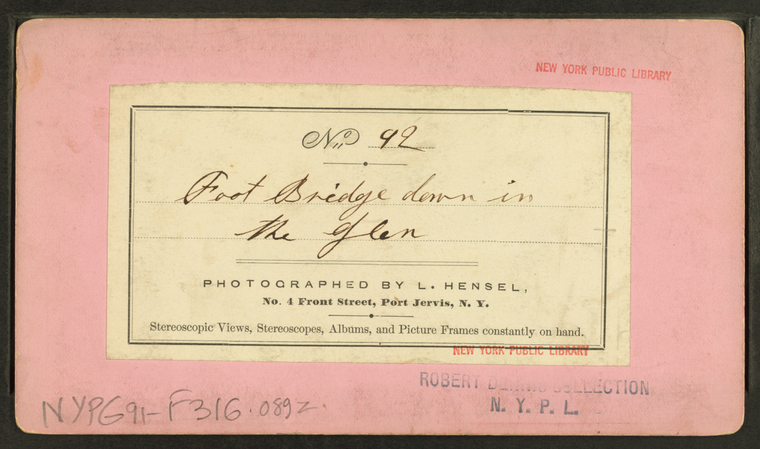 NEW YORK PUBLIC LIBRARY
No 92
Foot Bridge down in
the Glen
PHOTOGRAPHED BY L. HENSEL,
No. 4 Front Street, Port Jervis, N. Y.
Stereoscopic Views, Stereoscopes, Albums, and Picture Frames constantly on hand.
NEW YORK PUBLIC LIBRARY
ROBERT DENNIS COLLECTION
N. Y. P. L.
NYPG91-F316.089z.